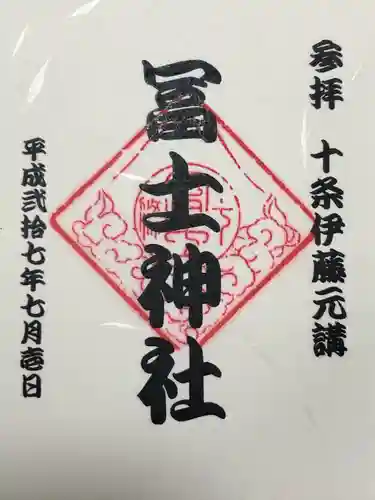 参拝 十条伊藤元講
冨士神社
平成弐拾七年七月壱日